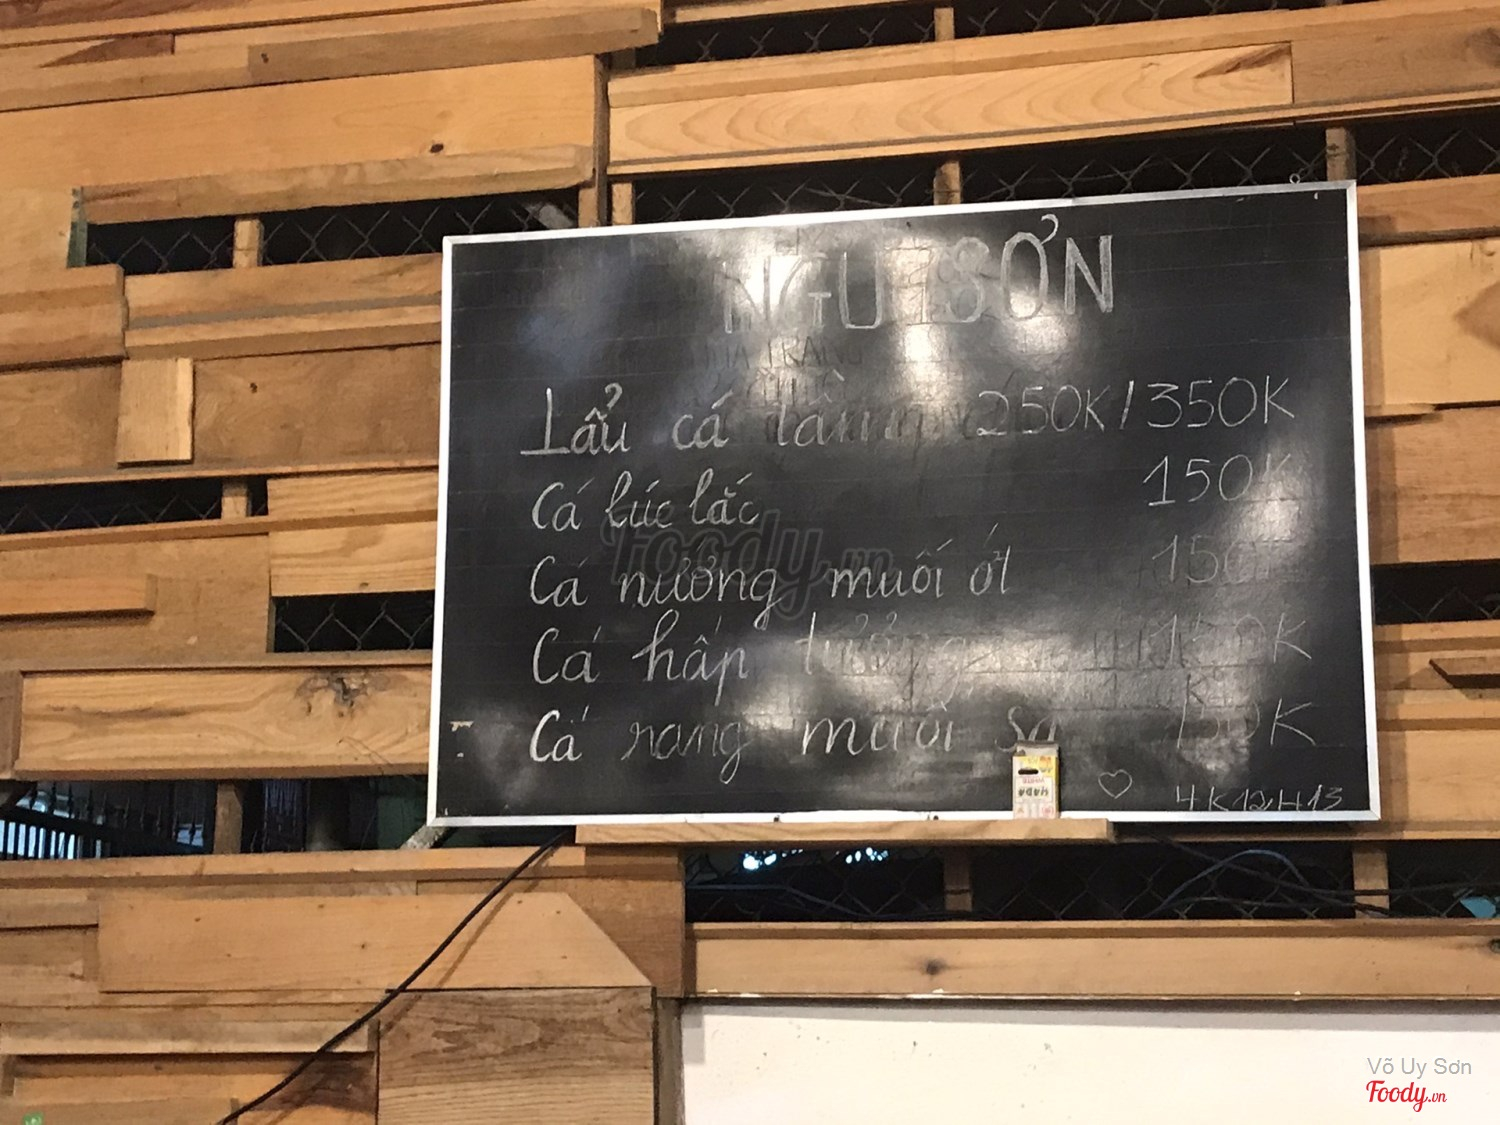 SƠN
Lẩu cá tầm 250K/350K
Cá lúc lắc 150K
Cá nướng muối ớt 150
Cá hấp tưởng 150K
Cá rang muối sả 150K
4K12H13
Foody.vn
Võ Uy Sơn
Foody.vn